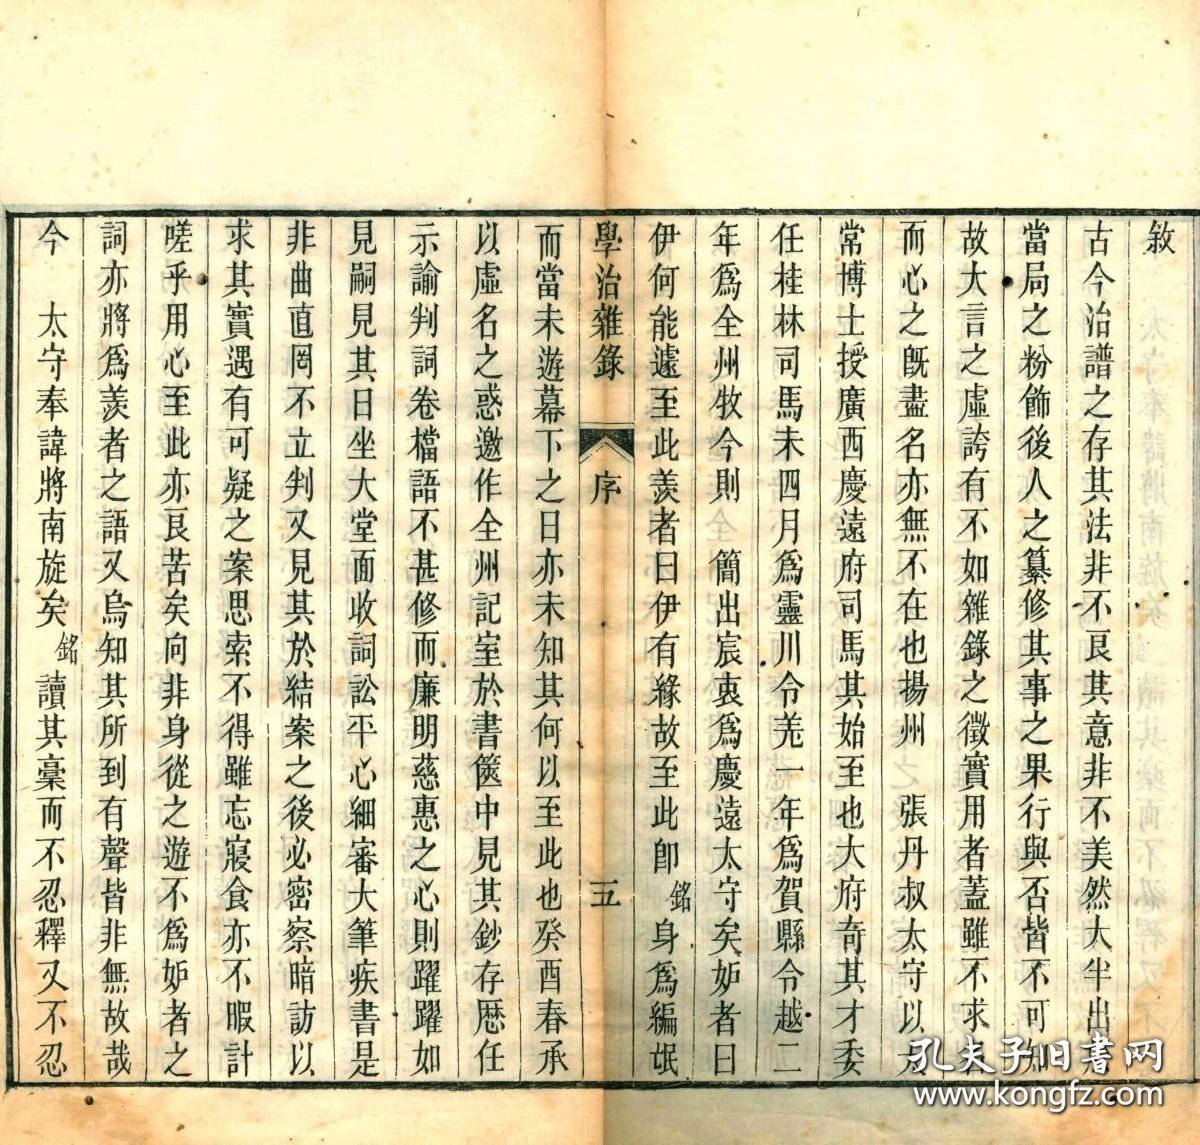 敘
古今治譜之存其法非不良其意非不美然大半出
當局之粉飾後人之纂修其事之果行與否皆不可知
故大言之虛誇有不如雜錄之徵實用者蓋雖不求
而心之既盡名亦無不在也揚州　張丹叔太守以
常博士授廣西慶遠府司馬其始至也大府奇其才委
任桂林司馬未四月為靈川令羌一年為賀縣令越二
年為全州牧今則　簡出宸衷為慶遠太守矣妒者曰
伊何能遽至此羨者曰伊有緣故至此卽銘身為編氓
學治雜錄　序　五
而當未遊幕下之日亦未知其何以至此也癸酉春承
以虛名之惑邀作全州記室於書篋中見其鈔存歷任
示諭判詞卷檔語不甚修而廉明慈惠之心則躍躍如
見嗣見其日坐大堂面收詞訟平心細審大筆疾書是
非曲直罔不立判又見其於結案之後必密察暗訪以
求其實遇有可疑之案思索不得雖忘寢食亦不暇計
嗟乎用心至此亦良苦矣向非身從之遊不為妒者之
詞亦將為羨者之語又烏知其所到有聲皆非無故哉
今　太守奉諱將南旋矣銘讀其稾而不忍釋又不忍
孔夫子旧書网
www.kongfz.com